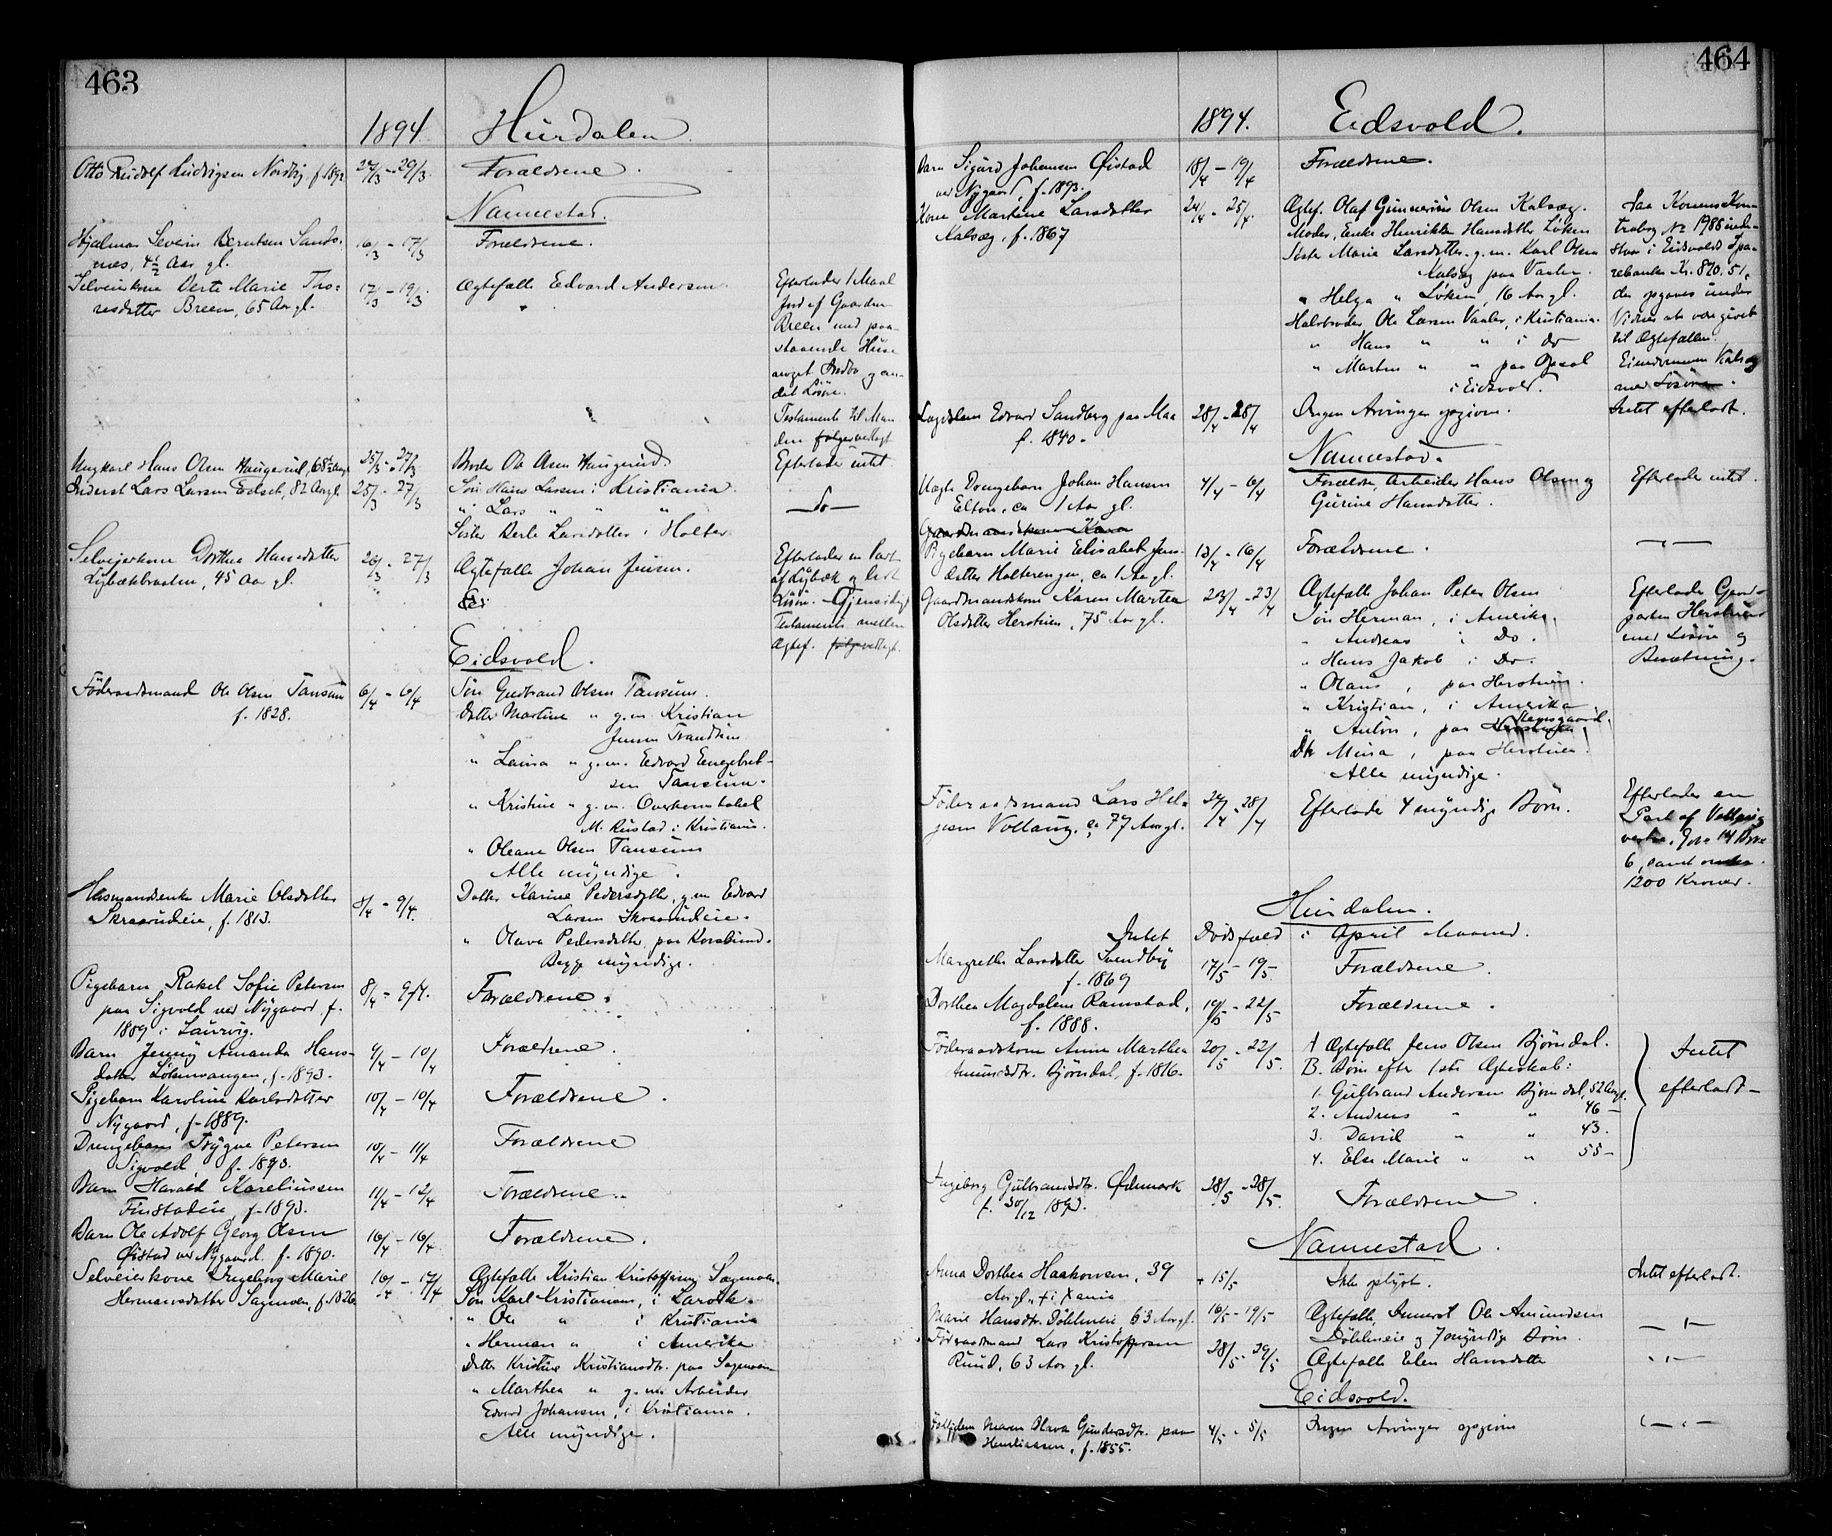 463
1894. Hurdalen.
Otto Rudolf Ludvigsen Nordby, f. 1892 27/3 - 29/3 Forældrene.
Nannestad.
Hjalmar Severin Berntsen Sands-
nes, 4½ Aar gl. 16/3 - 17/3 Forældrene.
Selveierkone Berte Marie Tho-
resdatter Breen, 65 Aar gl. 17/3 - 19/3 Ægtefælle Edvard Andersen.
Efterlader 1 Maal
Jord af Gaarden
Breen med paa-
staaende Huse
noget Indbo og an-
det Løsøre.
Testamente til Man-
den følger vedlagt
Ungkarl Hans Olsen Haugerud, 68½ Aar gl. 25/3 - 27/3 Broder Ole Olsen Haugerud. Efterlader intet
Inderst Lars Larsen Eelset, 82 Aar gl. 25/3 - 27/3 Søn Hans Larsen i Kristiania. — Do —
" Lars " " "
Søster Berte Larsdatter i Holter
Selveierkone Dorthea Hansdatter
Lybækbraaten, 45 Aar gl. 26/3 - 27/3 Ægtefælle Johan Jensen.
Efterlader en Part
af Lybæk og lidt
Løsøre. Gjensidigt
Testamente mellem
Ægtef. følger vedlagt.
Eidsvold.
Føderaadsmand Ole Olsen Tansum
f. 1828. 6/4 - 6/4 Søn Gudbrand Olsen Tansum.
Datter Martine " g.m. Kristian
Jensen Trandsen
" Laura " g.m. Edvard Engebret-
sen Tansum.
" Kristine " g.m. Overkonstabel
M. Rustad i Kristiania.
" Oleane Olsen Tansum
Alle myndige.
Husmandsenke Marie Olsdatter
Skraarudeie, f. 1813. 8/4 - 9/4. Datter Karine Pedersdatter, g.m. Edvard
Larsen Skraarudeie.
" Olava Pedersdatter paa Korslund.
Begge myndige.
Pigebarn Rakel Sofie Petersen
paa Sigvold ved Nygaard, f.
1889 i Laurvig. 8/4 - 9/4. Forældrene.
Barn Jenny Amanda Hans-
datter Løkenvangen, f. 1893. 9/4 - 10/4 Forældrene.
Pigebarn Karoline Karlsdatter
Nygaard, f. 1889. 10/4 - 10/4 Forældrene.
Drengebarn Trygve Petersen
Sigvold, f. 1893. 10/4 - 11/4 Forældrene
Barn Harald Kareliussen
Finstadeie, f. 1893. 11/4 - 12/4 Forældrene.
Barn Ole Adolf Georg Olsen
Øistad ved Nygaard. f. 1890. 16/4 - 16/4 Forældrene.
Selveierkone Ingeborg Marie
Hermansdatter Sagmoen, f. 1826 16/4 - 17/4 Ægtefælle Kristian Kristoffersen Sagmoen.
Søn Karl Kristiansen, i Larvik.
" Ole " i Kristiania
" Herman " i Amerika
Datter Kristine Kristiansdtr. paa Sagmoen
" Marthea " g. m. Arbeider
Edvard Johansen, i Kristiania.
Alle myndige.
464
1894. Eidsvold.
Barn Sigurd Johansen Øistad
ved Nygaard, f. 1893. 18/4 - 19/4 Forældrene.
Kone Martine Larsdatter
Kalsæg, f. 1867 24/4 - 25/4. Ægtef. Olaf Gunnerius Olsen Kalsæg.
Moder, Enke Henrikke Hansdatter Løken
Søster Marie Larsdatter g.m. Karl Olsen
Kalsæg paa Vaaler.
" Helga " Løken, 16 Aar gl.
Halvbroder, Ole Larsen Vaaler, i Kristiania.
" Hans " " i do
" Morten " " paa Opsal
i Eidsvold.
Paa Konens Kon-
trabog No 1988 inde-
staar i Eidsvolds Spa-
rebank Kr. 870,51,
der opgaves under
Vidner at være givet
til Ægtefællen.
Eiendommen Kalsæg
med Løsøre.
Lægdslem Edvard Sandberg paa Maa
f. 1840. 28/4 - 28/4 Ingen Arvinger opgiven. Intet efterladt.
Nannestad.
Uægte Drengebarn Johan Hansen
Elton, ca 1 Aar gl. 4/4 - 6/4 Forældre, Arbeider Hans Olsen og
Gurine Hansdatter. Efterlader intet.
Gaardmandskone Karen
Pigebarn Marie Elisabet Jens-
datter Holterengen, ca 1 Aar gl. 13/4 - 16/4 Forældrene. — " —
Gaardmandskone Karen Martea
Olsdatter Herstuen, 75 Aar gl. 23/4 - 23/4 Ægtefælle Johan Peter Olsen
Søn Herman, i Amerika.
" Andreas i Do.
" Hans Jakob i Do.
" Olaus, paa Herstuen.
" Kristian, i Amerika
" Anton, paa
Dtr Mina, paa Herstuen.
Alle myndige.
Efterlader Gaard-
parten Herstuen
med Løsøre og
Besætning.
Føderaadsmand Lars Hel-
gesen Vollaug, ca 77 Aar gl. 27/4 - 28/4 Efterlader 4 myndige Børn.
Efterlader en
Part af
Gno 14 Bno
6, samt
1200 Kroner.
Hurdalen.
Intet Dødsfald i April Maaned.
Margrethe Larsdatter Svendby
f. 1869 17/5 - 19/5 Forældrene.
Dorthea Magdalene Ramstad,
f. 1888. 19/5 - 22/5 Forældrene.
Føderaadskone Anne Marthea
Amundsdtr. Bjørndal, f. 1816. 20/5 - 22/5. A Ægtefælle Jens Olsen Bjørndal.
B. Børn efter 1ste Ægteskab:
1. Gulbrand Andersen Bjørndal, 52 Aar gl.
2. Andreas " " 46 —
3. David " " 43.
4. Else Marie " " 55 —
Intet
efterladt —
Ingeborg Gulbrandsdtr. Ødemark
f. 30/12 1893. 28/5 - 28/5. Forældrene.
Nannestad.
Anna Dorthea Haakonsen, 39
Aar gl. + i Xania + 15/5 Ikke oplyst. Intet efterladt.
Marie Hansdtr. Døhleneie, 63 Aar gl. 16/5 - 19/5 Ægtefælle, Inderst Ole Amundsen
Døhleneie og 7 myndige Børn. — " —
Føderaadsmand Lars Kristoffersen
Ruud, 63 Aar gl. 28/5 - 29/5 Ægtefælle Elen Hansdatter — " —
Eidsvold.
Maren Olava Gundersdtr. paa
f. 1855. 4/5 - 5/5 Ingen Arvinger opgiven — " —